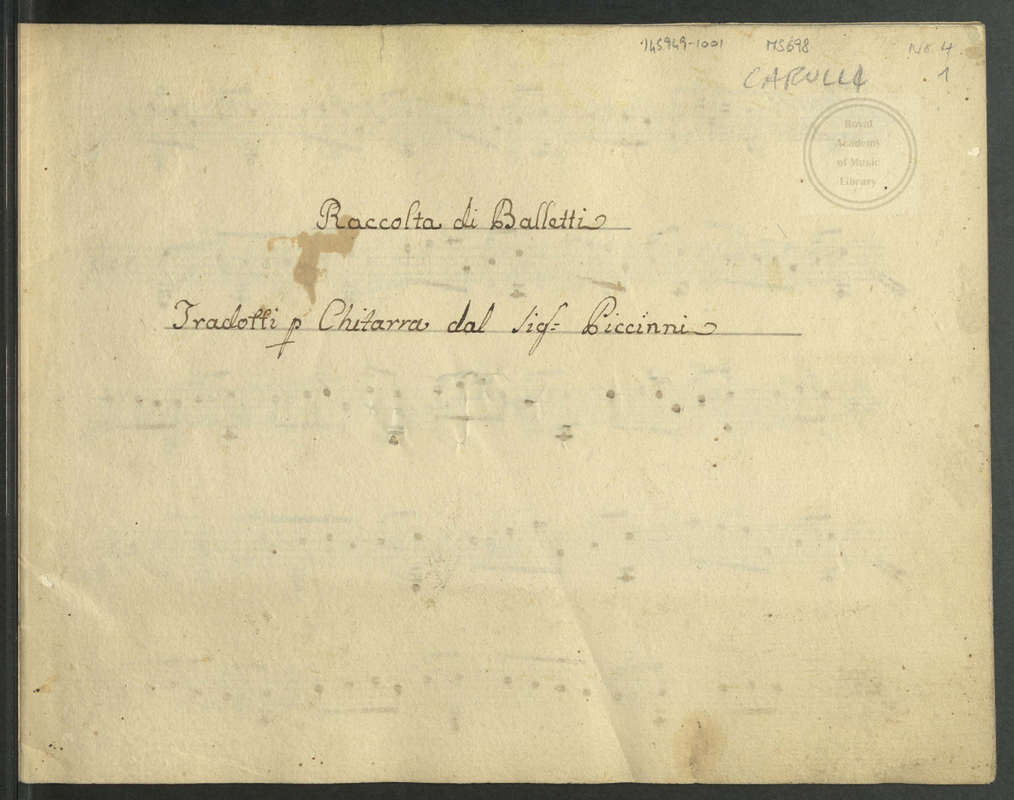 145949-1001 MS698 No. 4
CARULLI 1
Royal
Academy
of Music
Library
Raccolta di Balletti
Tradotti p Chitarra dal Sigr: Piccinni